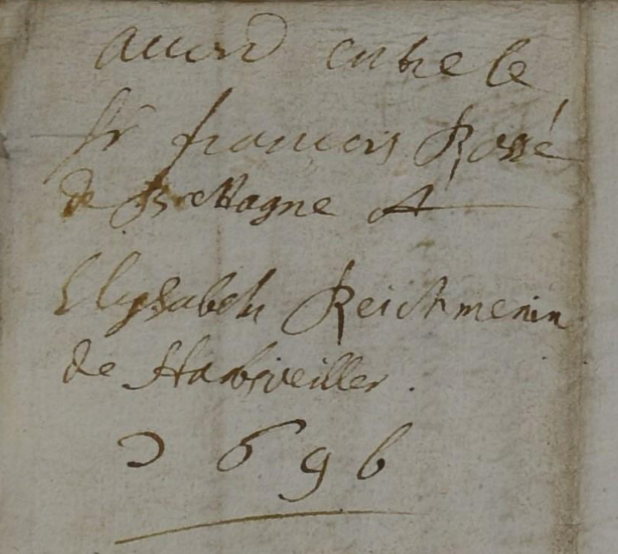 accord entre le
Sr francois Rossé
de Brettagne et
Elysabeth Reichmenin
de Habsveiller.
1696